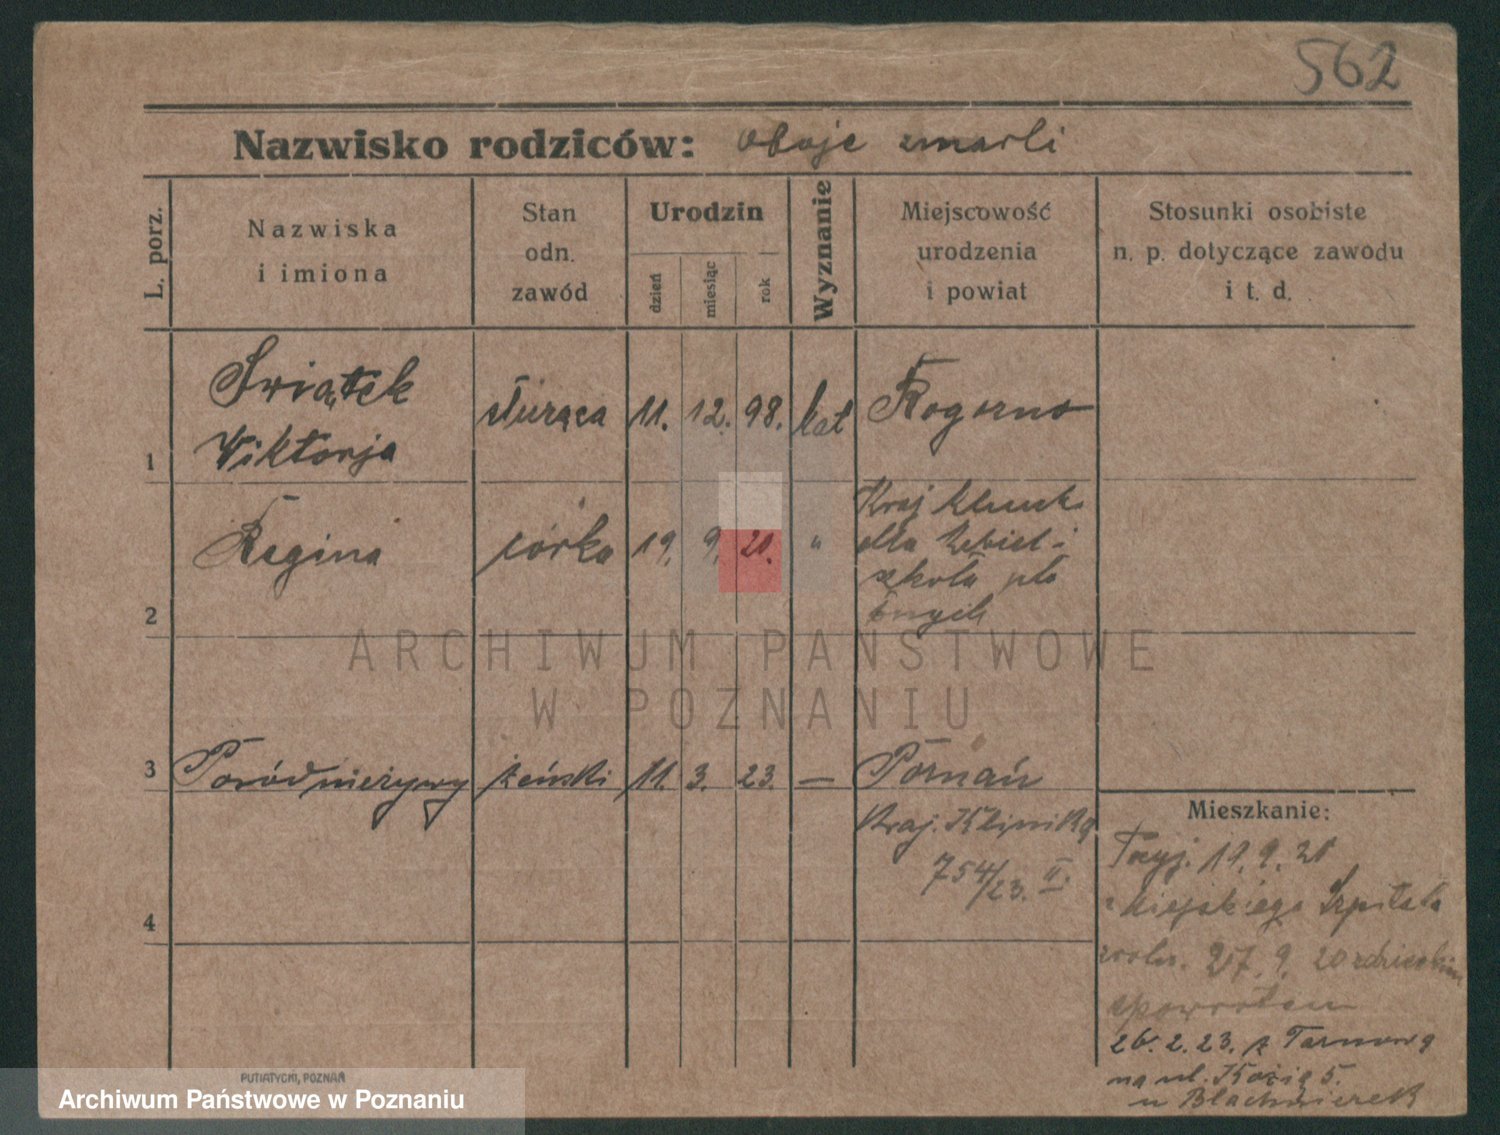 562
Nazwisko rodziców: oboje zmarli
L. porz.
Nazwiska
i imiona
Stan
odn.
zawód
Urodzin
dzień
miesiąc
rok
Wyznanie
Miejscowość
urodzenia
i powiat
Stosunki osobiste
n. p. dotyczące zawodu
i t. d.
1
Świątek
Wiktorja
służąca
11. 12. 98.
kat
Rogozno
2
Regina
córka
19. 9. 20.
"
Kraj Klinik
dla kobiet i
szkoła poło
żnych
3
Poród nieżywy
żeński
11. 3. 23.
—
Poznań
Kraj. Klinika
754/23. II.
4
Mieszkanie:
Przyj. 11. 9. 20
z Miejskiego Szpitala
zwoln. 27. 9. 20 z dzieckiem
zpowrotem
26. 2. 23. z Tarnowa
na ul. Kozia 5.
u Blachnierek
ARCHIWUM PAŃSTWOWE
W POZNANIU
PUTIATYCKI, POZNAŃ
Archiwum Państwowe w Poznaniu